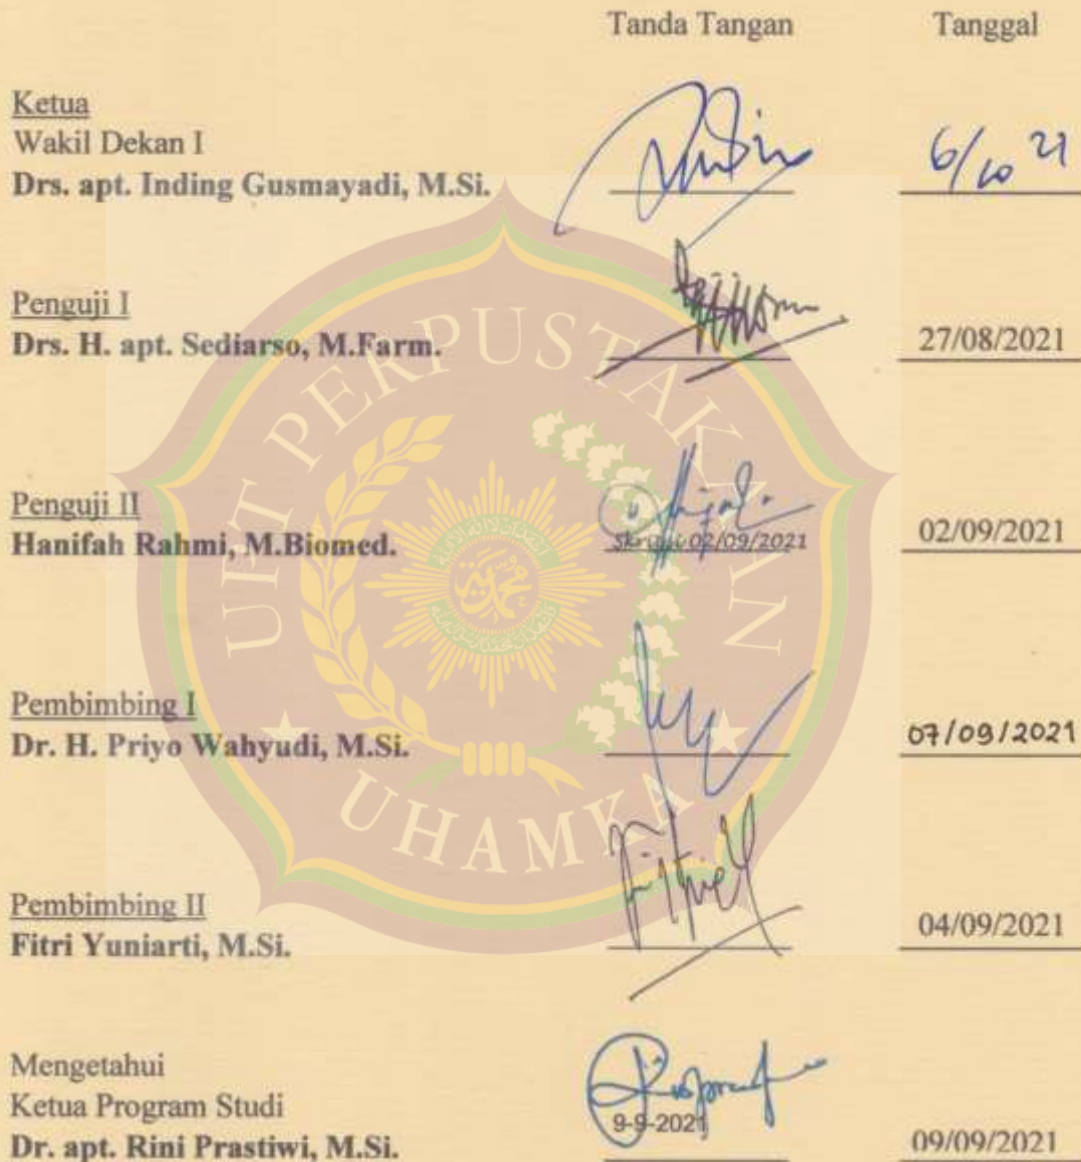 Tanda Tangan Tanggal
Ketua
Wakil Dekan I
Drs. apt. Inding Gusmayadi, M.Si.
6/10 21
Penguji I
Drs. H. apt. Sediarso, M.Farm.
27/08/2021
Penguji II
Hanifah Rahmi, M.Biomed.
Skripsi 02/09/2021
02/09/2021
Pembimbing I
Dr. H. Priyo Wahyudi, M.Si.
07/09/2021
Pembimbing II
Fitri Yuniarti, M.Si.
04/09/2021
Mengetahui
Ketua Program Studi
Dr. apt. Rini Prastiwi, M.Si.
9-9-2021
09/09/2021
UPT PERPUSTAKAAN
UHAMKA